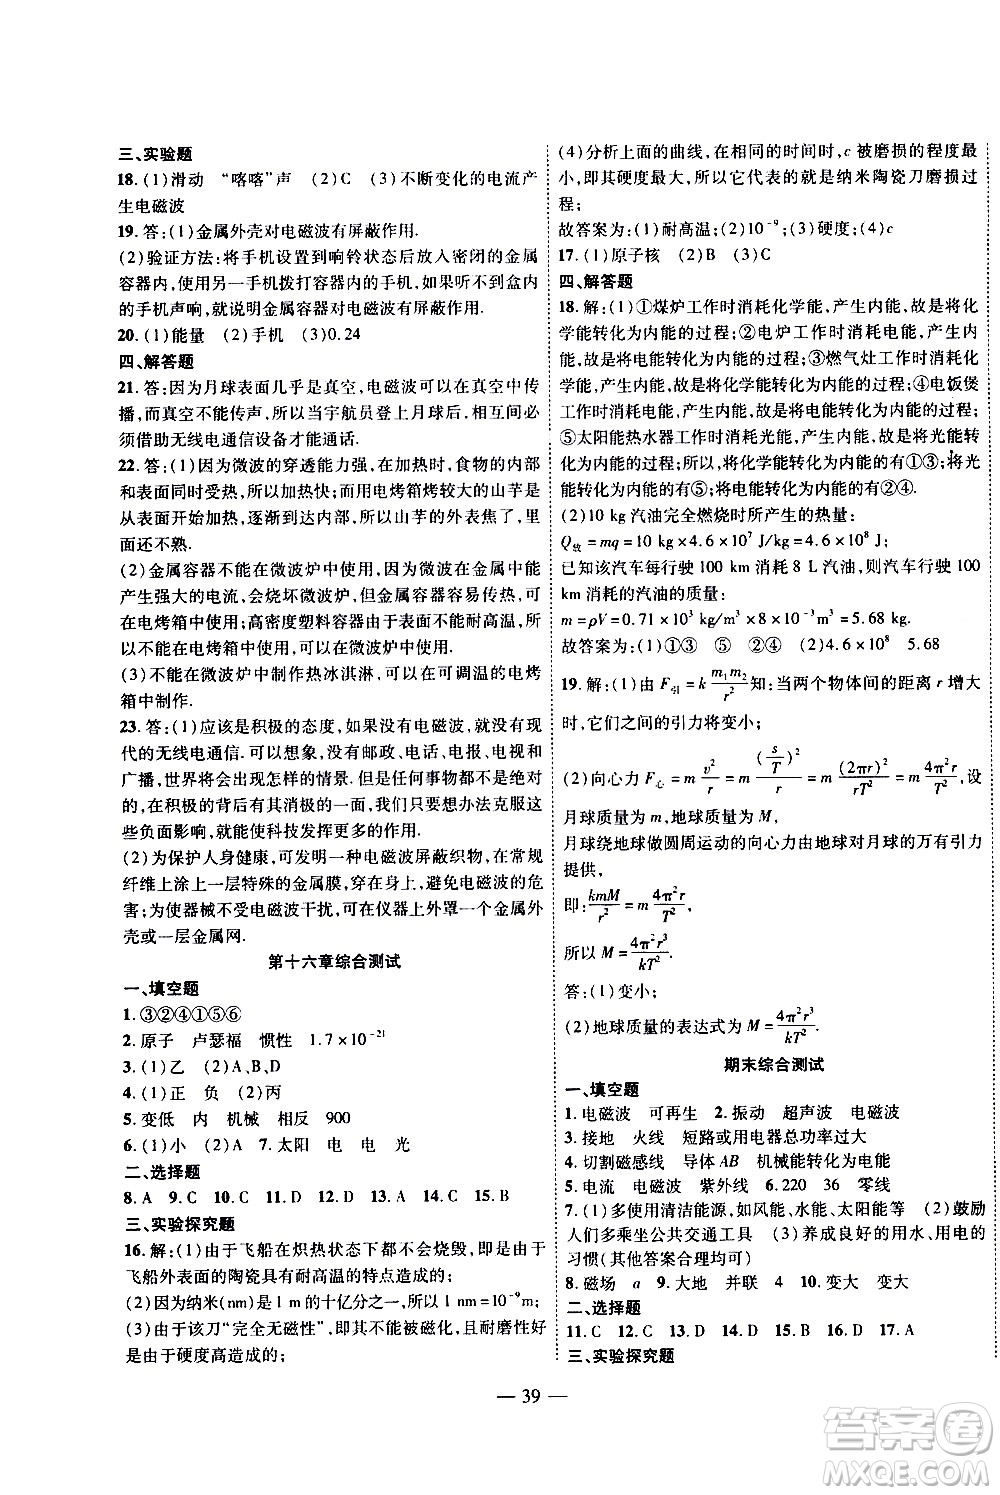 三、实验题
18.(1)滑动　“喀喀”声　(2)C　(3)不断变化的电流产
生电磁波
19.答:(1)金属外壳对电磁波有屏蔽作用.
(2)验证方法:将手机设置于响铃状态后放入密闭的金属
容器内,使用另一手机拨打容器内的手机,如果听不到盒内
的手机声响,就说明金属容器对电磁波有屏蔽作用.
20.(1)能量　(2)手机　(3)0.24
四、解答题
21.答:因为月球表面几乎是真空,电磁波可以在真空中传
播,而真空不能传声,所以当宇航员登上月球后,相互间必
须借助无线电通信设备才能通话.
22.答:(1)因为微波的穿透能力强,在加热时,食物的内部
和表面同时受热,所以加热快;而用电烤箱烤较大的山芋时
是从表面开始加热,逐渐到达内部,所以山芋的外表焦了,里
面还不熟.
(2)金属容器不能在微波炉中使用,因为微波能在金属中
产生强大的电流,会烧坏微波炉,但金属容器容易传热,可在
电烤箱中使用;高密度塑料容器由于不能耐高温,所以不能
在电烤箱中使用,但可以在微波炉中使用.
(3)不能在微波炉中制作热冰淇淋,可以在可调温的电烤
箱中制作.
23.答:(1)应该是积极的态度,如果没有电磁波,就没有现
代的无线电通信.可以想象,如果没有邮政、电话、电报、电视和
广播,世界将会出现怎样的情景.但任何事物都是一分为二
的,在积极的背后有其消极的一面,我们要想办法克服这
些负面影响,就能使科技发挥更多的作用.
(2)为保护人身健康,可发明一种电磁波屏蔽织物,例如在
纤维上涂上一层特殊的金属膜,可屏蔽、避免电磁波的危
害;为使器械不受电磁波干扰,可在仪器上外罩一个金属外
壳或一层金属网.
第十六章综合测试
一、填空题
1.③②④①⑤⑥
2.原子　卢瑟福　惯性　1.7×10⁻²¹
3.(1)乙　(2)A、B、D
4.(1)正　负　(2)丙
5.变低　内　机械　相反　900
6.(1)小　(2)A　7.太阳　电　电　光
二、选择题
8.A　9.C　10.C　11.D　12.D　13.A　14.C　15.B
三、实验探究题
16.解:(1)由于飞船在炽热状态下都不能烧毁,即是由于
飞船外表面的陶瓷具有耐高温的特点造成的;
(2)因为纳米(nm)是1 m的十亿分之一,所以1 nm=10⁻⁹m;
(3)由于该刀“完全无磁性”,即其不能被磁化,且耐磨性好
是由于硬度高造成的;
(4)分析上面的曲线,在相同的时间时,c被磨损的程度最
小,即其硬度最大,所以它代表的是纳米陶瓷刀磨损过
程;
故答案为:(1)耐高温;(2)10⁻⁹;(3)硬度;(4)c
17.(1)原子核　(2)B　(3)C
四、解答题
18.解:(1)①煤炉工作时消耗化学能,产生内能,故是将化
学能转化为内能的过程;②电炉工作时消耗电能,产生内
能,故是将电能转化为内能的过程;③燃气灶工作时消耗化
学能,产生内能,故是将化学能转化为内能的过程;④电饭煲
工作时消耗电能,产生内能,故是将电能转化为内能的过程;
⑤太阳能热水器工作时消耗光能,产生内能,故是将光能转
化为内能的过程;所以,将化学能转化为内能的有①③;将光
能转化为内能的有⑤;将电能转化为内能的有②④.
(2)10 kg汽油完全燃烧时所产生的热量:
Q放=mq=10 kg×4.6×10⁷ J/kg=4.6×10⁸ J;
已知该汽车每行驶100 km消耗8 L汽油,则汽车行驶100
km消耗的汽油的质量:
m=ρV=0.71×10³ kg/m³×8×10⁻³ m³=5.68 kg.
故答案为:(1)①③　⑤　②④　(2)4.6×10⁸　5.68
19.解:(1)由F引=k m₁m₂/r²知:当两个物体间的距离r增大
时,它们之间的引力将变小;
(2)向心力F心=m v²/r=m (s/T)²/r=m (2πr)²/rT²=m 4π²r/T²,设
月球质量为m,地球质量为M,
月球绕地球做圆周运动的向心力由地球对月球的万有引力
提供,
即:kmM/r²=m 4π²r/T²,
所以M=4π²r³/kT².
答:(1)变小;
(2)地球质量的表达式为M=4π²r³/kT².
期末综合测试
一、填空题
1.电磁波　可再生　2.振动　超声波　电磁波
3.接地　火线　短路或用电器总功率过大
4.切割磁感线　导体AB　机械能转化为电能
5.电流　电磁波　紫外线　6.220　36　零线
7.(1)多使用清洁能源,如风能、水能、太阳能等　(2)鼓励
人们多乘坐公共交通工具　(3)养成良好的用水、用电的
习惯(其他答案合理均可)
8.磁场　a　9.大地　并联　4　10.变大　变大
二、选择题
11.C　12.C　13.C　14.D　15.D　16.D　17.A
三、实验探究题
— 39 —
答案圈
MXQE.COM